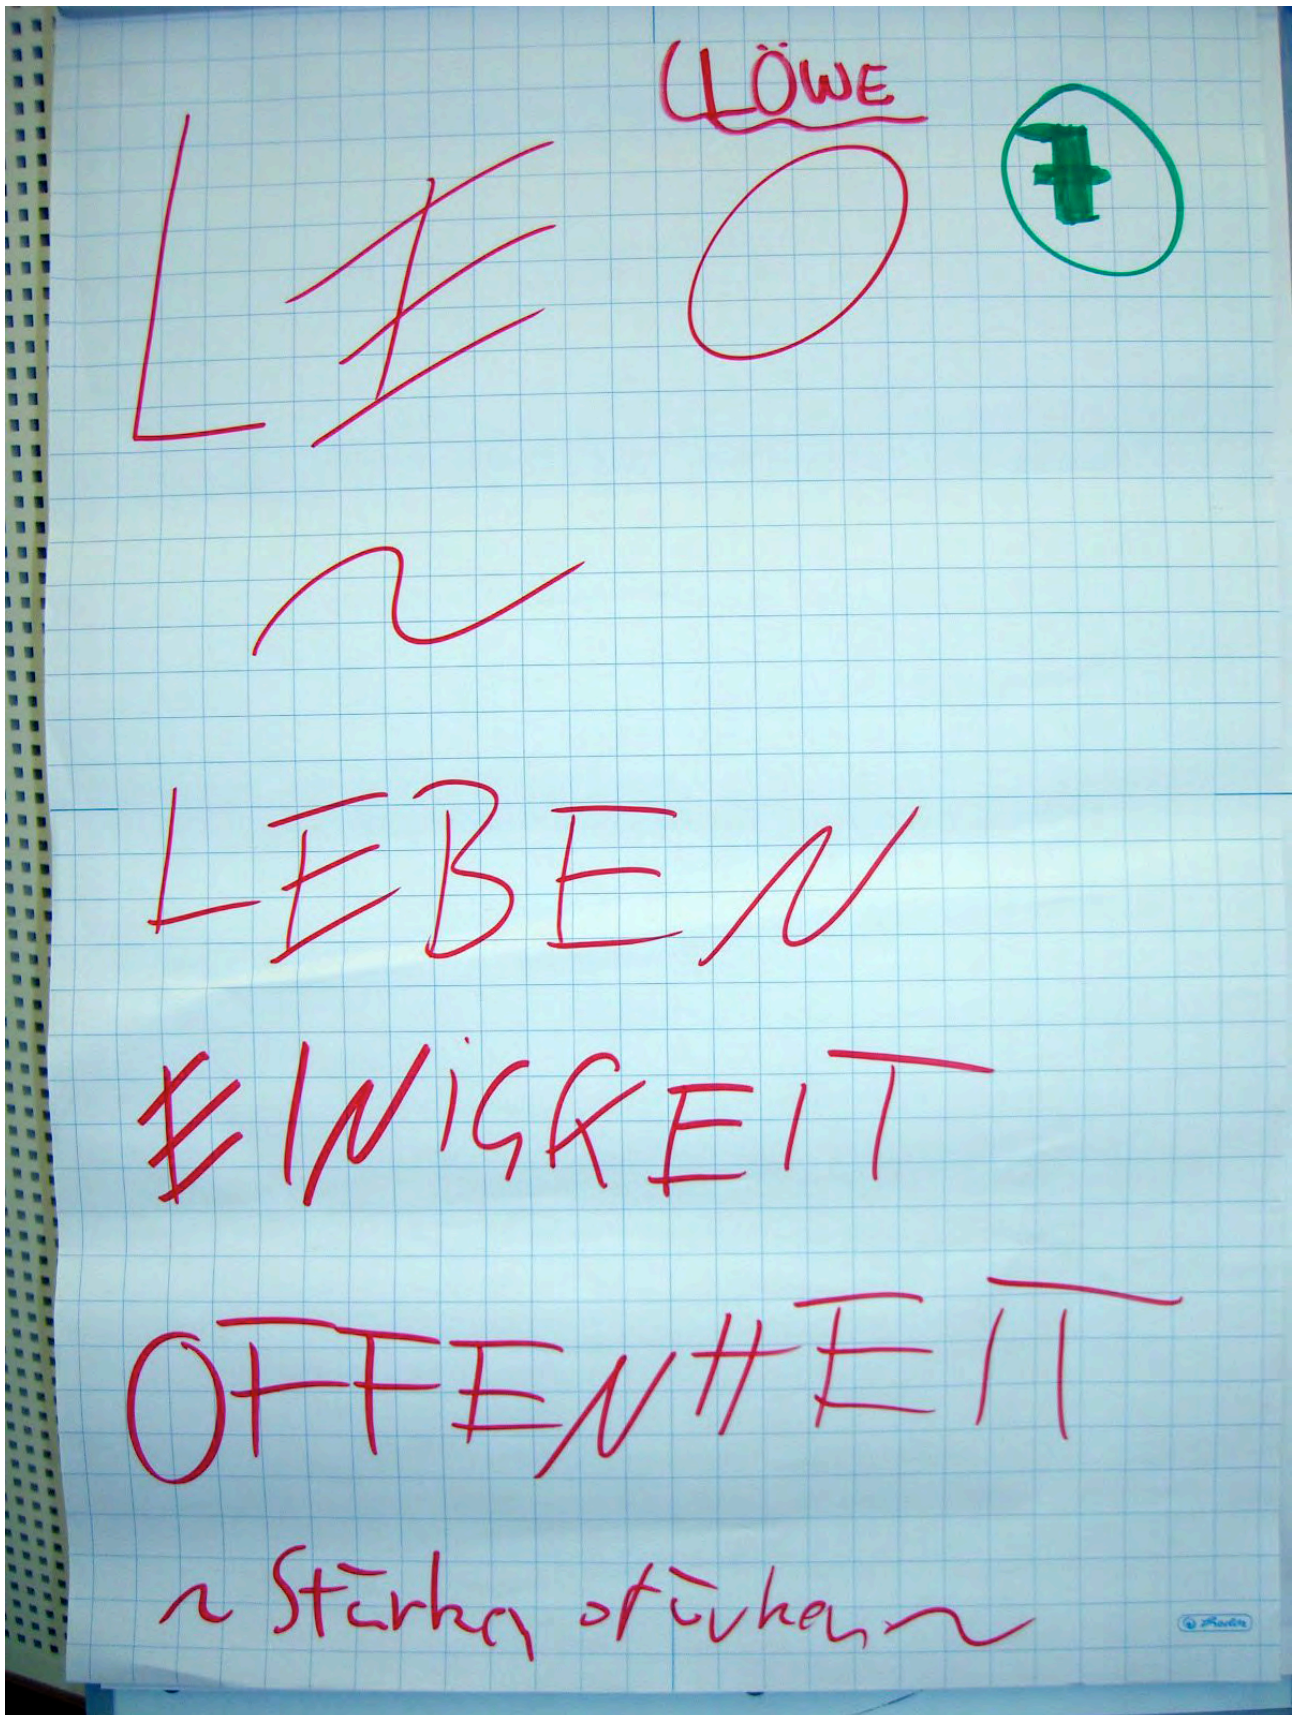 LÖWE
LEO
7
~
LEBEN
EINIGKEIT
OFFENHEIT
~ Stärken stärken ~